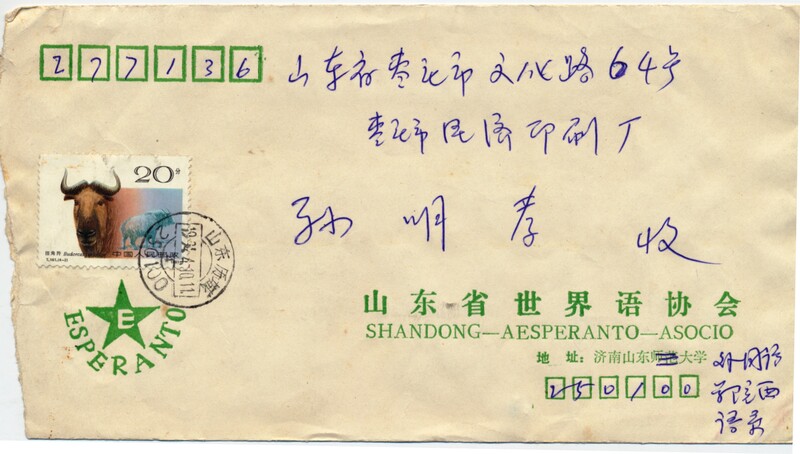 277136
山东省枣庄市文化路64号
枣庄市民泽印刷厂
孙明孝 收
20分
中国人民邮政
山东历城
ESPERANTO
E
山东省世界语协会
SHANDONG—AESPERANTO—ASOCIO
地 址：济南山东师范大学
外国语
西
语系
250100